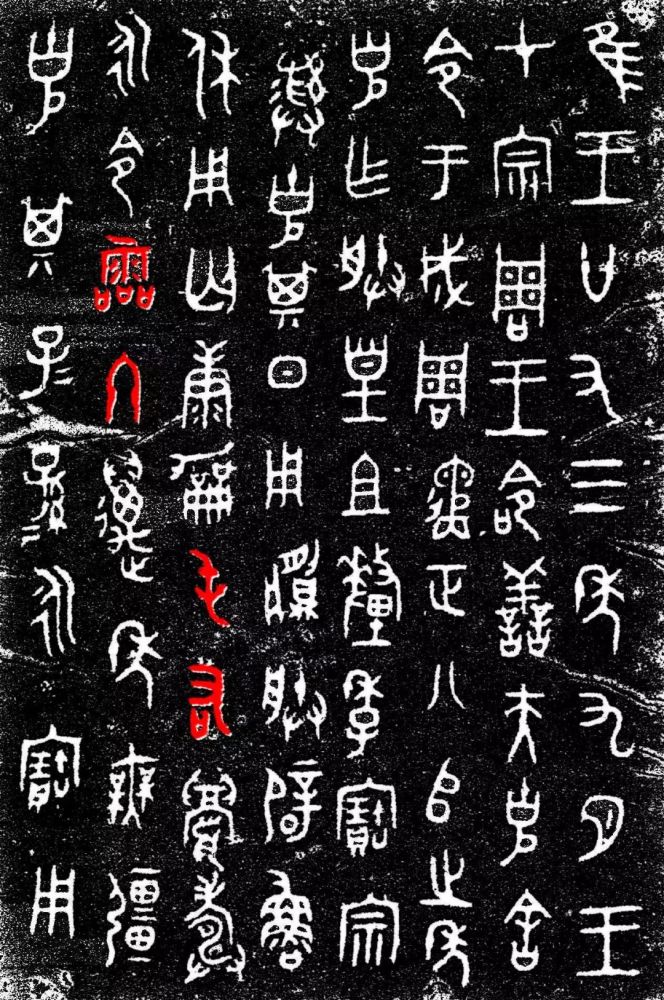 隹王廿又三年九月王
才宗周王命善夫克舍
令于成周遹正八𠂤之年
克乍朕皇且釐季寶宗
彝克其日用䵼朕辟魯
休用匄康勵屯右眉壽
永令霝冬邁年無疆
克其子子孫孫永寶用